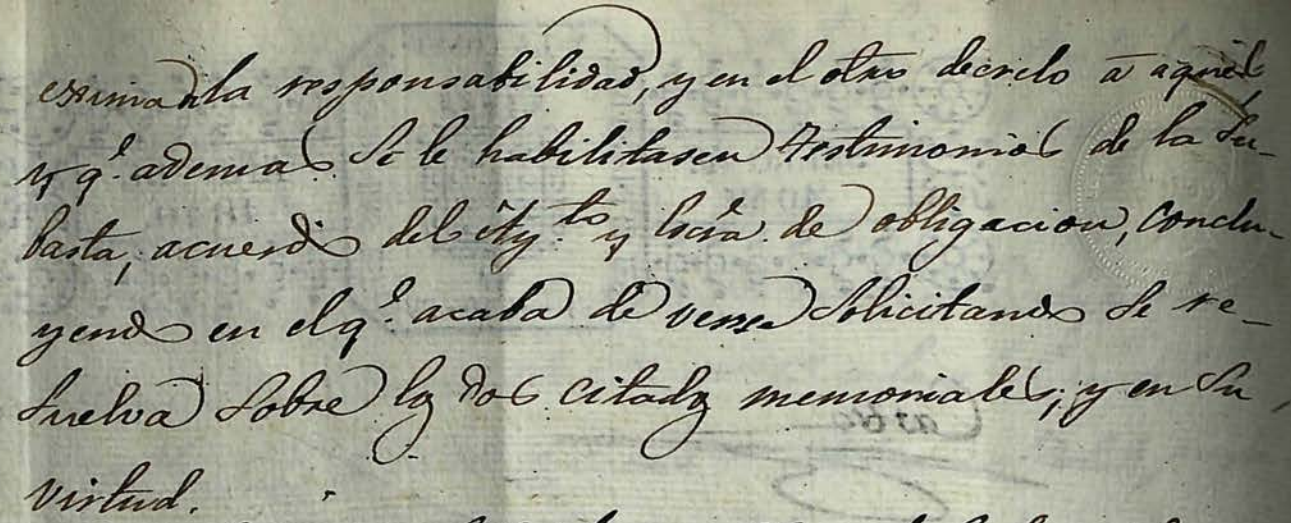 exima la responsabilidad, y en el otro decreto a aquel
y q.e ademas se le habilitasen testimonios de la su-
basta, acuerdo del Ay.to y escra. de obligacion, conclu-
yendo en el q.e acaba de verse solicitando se re-
suelva sobre los dos citados memoriales; y en su
virtud.